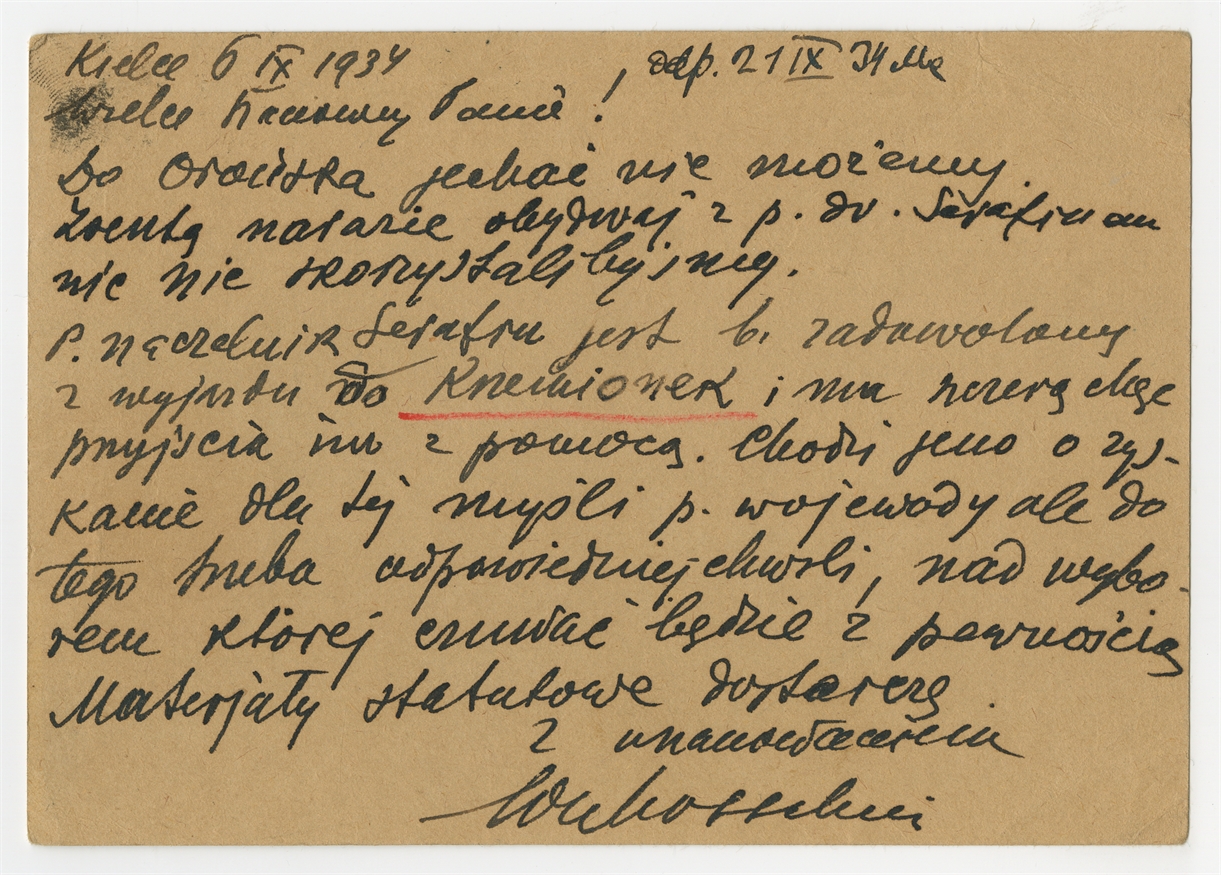 Kielce 6 IX 1934 odp. 21 IX 34
Wielce Szanowny Panie!
Do Orońska jechać nie możemy.
Zresztą narazie obydwaj z p. dr. Serafinem
nic nie skorzystalibyśmy.
P. naczelnik Serafin jest b. zadowolony
z wyjazdu do Krzemionek i ma szczerą chęć
przyjścia im z pomocą. Chodzi jeno o zys-
kanie dla tej myśli p. wojewody ale do
tego trzeba odpowiedniej chwili, nad wybo-
rem której czuwać będzie z pewnością
Materjały statutowe dostarczę
Z uszanowaniem